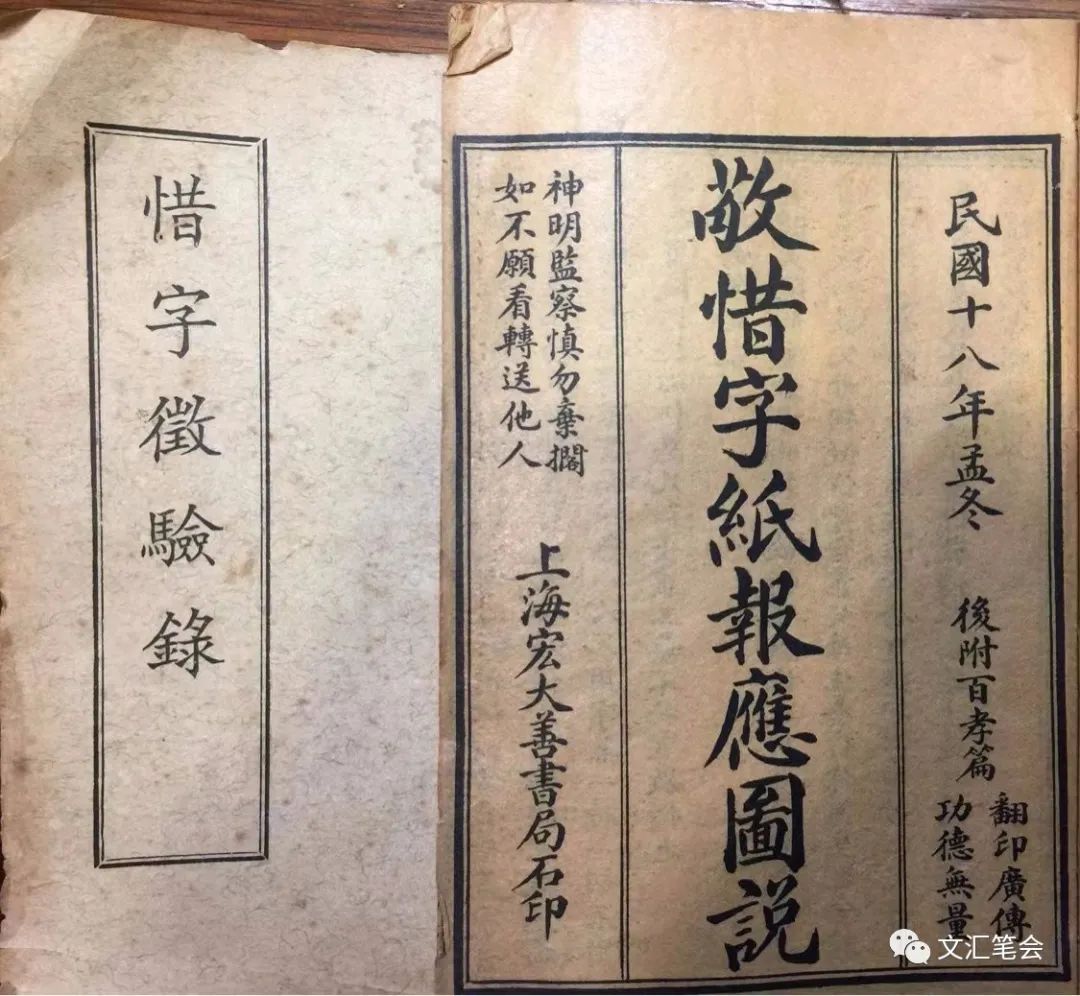 惜字徵驗錄
民國十八年孟冬
後附百孝篇
翻印廣傳
功德無量
敬惜字紙報應圖説
神明監察慎勿棄擱
如不願看轉送他人
上海宏大善書局石印
文汇笔会